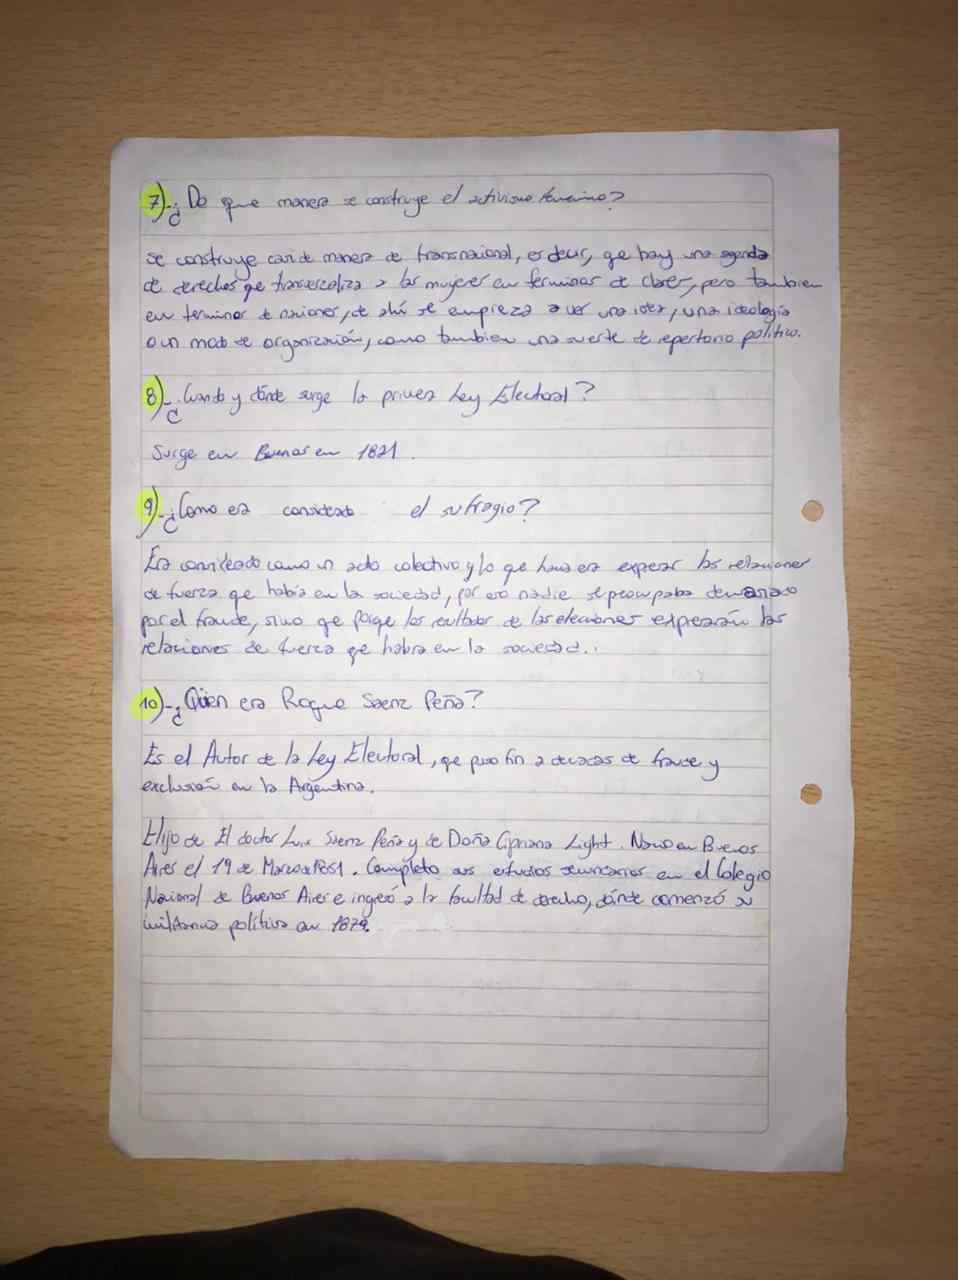 7)-¿De que manera se construye el activismo femenino?
Se construye casi de manera de transnacional, es decir, qe hay una agenda
de derechos qe transversaliza a las mujeres en terminos de clases, pero tambien
en terminos de naciones, de ahí se empieza a ver una idea, una ideología
o un modo de organización, como tambien una suerte de repertorio político.
8)-¿Cuando y dónde surge la primera Ley Electoral?
Surge en Buenos en 1821.
9)-¿Como era considerado el sufragio?
Era considerado como un acto colectivo y lo que hacia era expresar las relaciones
de fuerza qe había en la sociedad, por eso nadie se preocupaba demasiado
por el fraude, sino qe porqe los resultados de las elecciones expresarán las
relaciones de fuerza qe habra en la sociedad..
10)-¿Quien era Roque Saenz Peña?
Es el Autor de la Ley Electoral, qe puso fin a decadas de fraude y
exclusión en la Argentina.
Hijo de El doctor Luis Saenz Peña y de Doña Cipriana Light. Nacio en Buenos
Aires el 19 de Marzo de 1851. Completo sus estudios secundarios en el Colegio
Nacional de Buenos Aires e ingresó a la facultad de derecho, dónde comenzó su
militancia política en 1874.